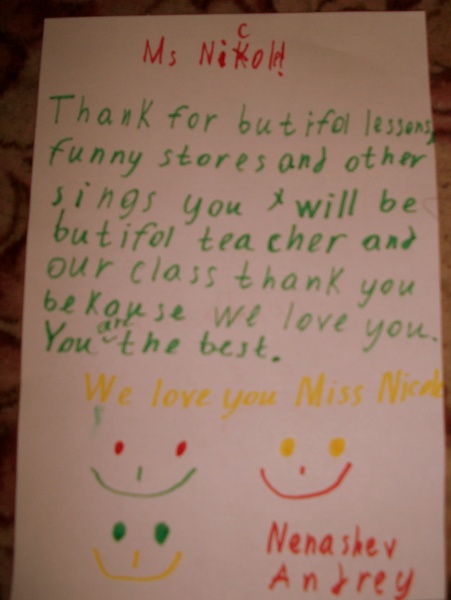 Ms Nicol!
Thank for butifol lessons,
funny stores and other
sings you will be
butifol teacher and
our class thank you
bekause we love you.
You are the best.
We love you Miss Nicole
Nenashev
Andrey